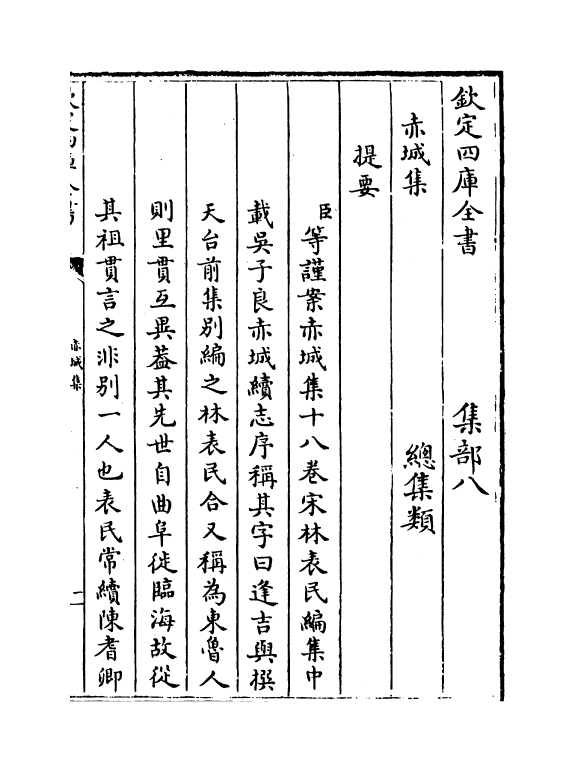 欽定四庫全書　集部八
赤城集　總集類
提要
臣等謹案赤城集十八卷宋林表民編集中
載吳子良赤城續志序稱其字曰逢吉與撰
天台前集別編之林表民合又稱為東魯人
則里貫互異葢其先世自曲阜徙臨海故從
其祖貫言之非別一人也表民常續陳耆卿
赤城集